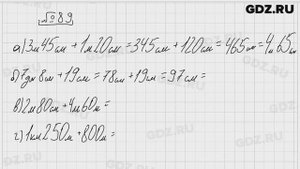 GDZ.RU
№ 89
а) 3м 45см + 1м 20см = 345см + 120см = 465см = 4м 65см
б) 7дм 8см + 19см = 78см + 19см = 97см =
в) 2м 80см + 4м 60м =
г) 1км 250м + 800м =
GDZ.RU